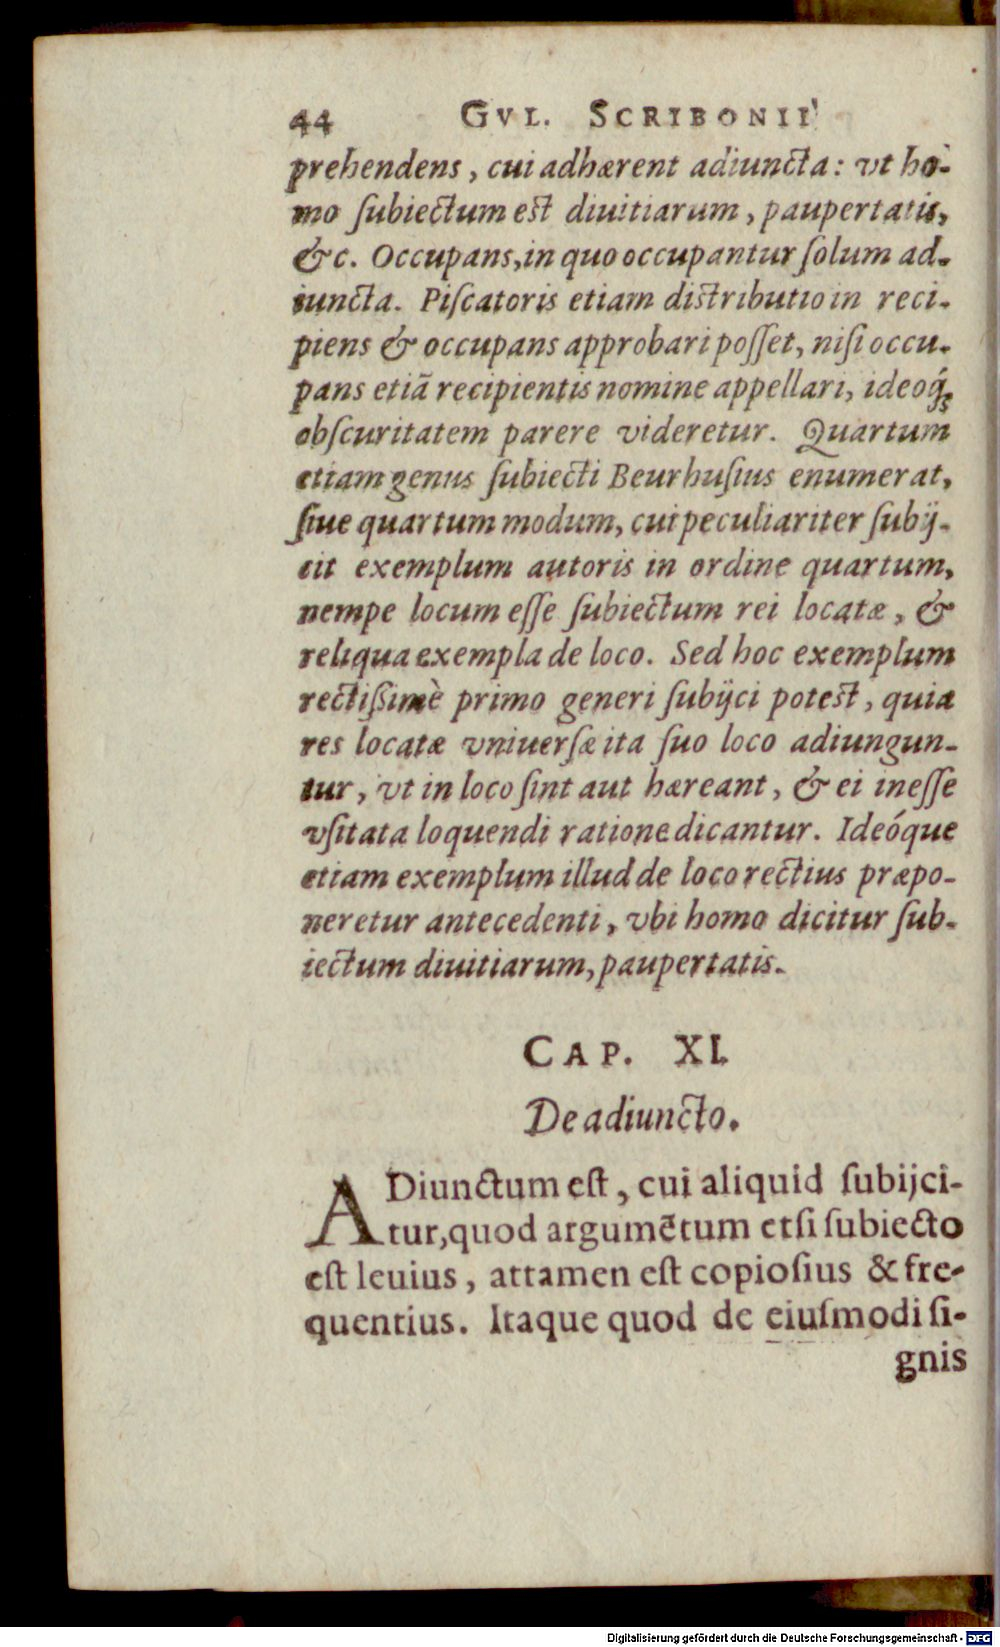 44 GVL. SCRIBONII
prehendens, cui adhærent adiuncta: vt ho-
mo ſubiectum est diuitiarum, paupertatis,
&c. Occupans, in quo occupantur ſolum ad-
iuncta. Piſcatoris etiam distributio in reci-
piens & occupans approbari poſſet, niſi occu-
pans etiã recipientis nomine appellari, ideoq́;
obſcuritatem parere videretur. Quartum
etiam genus ſubiecti Beurhuſius enumerat,
ſiue quartum modum, cui peculiariter ſubij-
cit exemplum autoris in ordine quartum,
nempe locum eſſe ſubiectum rei locatæ, &
reliqua exempla de loco. Sed hoc exemplum
rectißimè primo generi ſubijci potest, quia
res locatæ vniuerſæ ita ſuo loco adiungun-
tur, vt in loco ſint aut hæreant, & ei ineſſe
vſitata loquendi ratione dicantur. Ideóque
etiam exemplum illud de loco rectius præpo-
neretur antecedenti, vbi homo dicitur ſub-
iectum diuitiarum, paupertatis.
CAP. XI.
De adiuncto.
ADiunctum eſt, cui aliquid ſubijci-
tur, quod argumẽtum etſi ſubiecto
eſt leuius, attamen eſt copioſius & fre-
quentius. Itaque quod de eiuſmodi ſi-
gnis
Digitalisierung gefördert durch die Deutsche Forschungsgemeinschaft - DFG